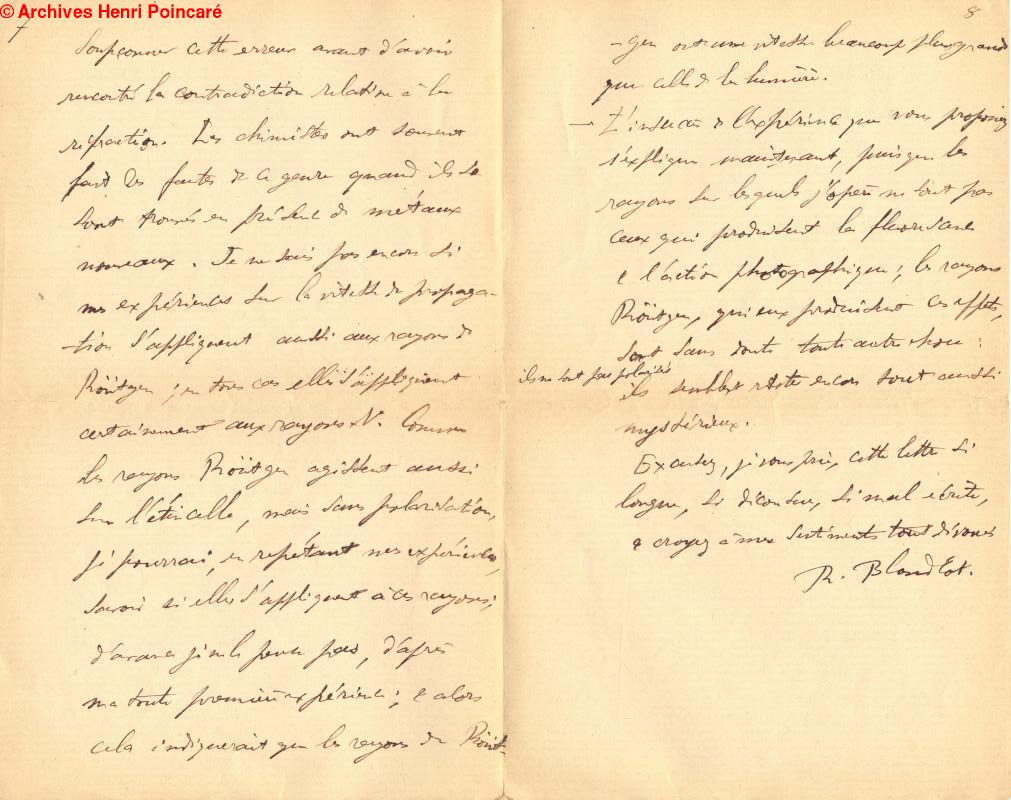 © Archives Henri Poincaré
7
Soupçonner cette erreur avant d'avoir
rencontré la contradiction relative à la
réfraction. Les chimistes ont souvent
fait des fautes de ce genre quand ils se
sont trouvés en présence de métaux
nouveaux. Je ne sais pas encore si
mes expériences sur la vitesse de propaga-
-tion s'appliquent aussi aux rayons de
Röntgen ; en tous cas elles s'appliquent
certainement aux rayons N. Comme
les rayons Röntgen agissent aussi
sur l'étincelle, mais sans polarisation,
je pourrai, en répétant mes expériences,
savoir si elles s'appliquent à ces rayons ;
d'avance je ne le pense pas, d'après
ma toute première expérience ; & alors
cela indiquerait que les rayons de Rönt-
8
-gen ont une vitesse beaucoup plus grande
que celle de la lumière.
— L'insuccès de l'expérience que vous proposiez
s'explique maintenant, puisque les
rayons sur lesquels j'opère ne sont pas
ceux qui produisent la fluorescence
& l'action photographique ; les rayons
Röntgen, qui eux produisent ces effets,
sont sans doute toute autre chose :
ils ne sont pas polarisés
ils semblent rester encore tout aussi
mystérieux.
Excusez, je vous prie, cette lettre si
longue, si décousue, si mal écrite,
& croyez à mes sentiments tout dévoués
R. Blondlot.